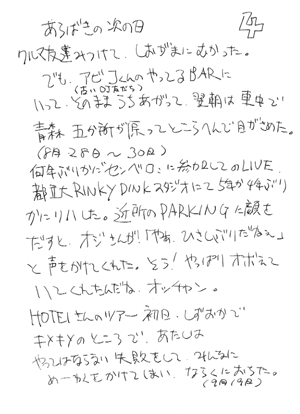 あらばきの次の日
クルマ友達みつけて、しおがまにむかった。
でも、アビコくんのやってるBARに
(古いDJ友だち)
いって、そのままうちあがって、翌朝は車中で
青森 五分所が原ってところへんで目がさめた。
(8月28日〜30日)
何年ぶりかにゼンベロ:に参加してのLIVE。
都立大RINKY DINKスタジオにて5年か4年ぶり
かにリハした。近所のPARKINGに顔を
だすと、オジさんが!「やぁ、ひさしぶりだねぇ」
と声をかけてくれた。そう!やっぱりオボえて
いてくれたんだね。オッチャン。
HOTEIさんのツアー初日、しずおかで
キメキメのところで、あたしは
やってはならない失敗をして、みんなに
めーわくをかけてしまい、ならくにおちた。
(9月19日)